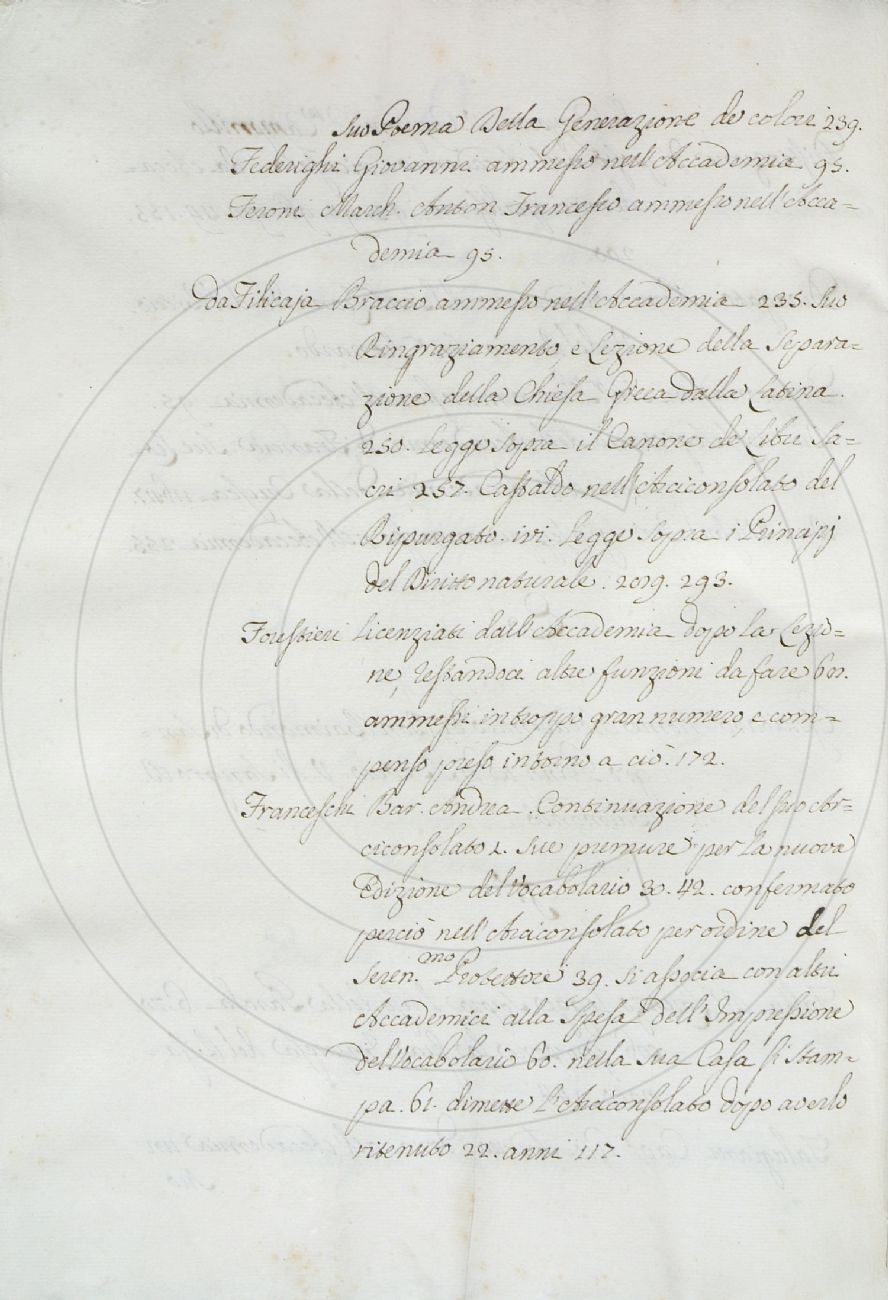 suo Poema Della Generazione de colori 239.
Federighi Giovanni ammesso nell'Accademia 95.
Feroni March. Anton Francesco ammesso nell'Acca=
demia 95.
da Filicaja Braccio ammesso nell'Accademia 235. suo
Ringraziamento e Lezione della separa=
zione della Chiesa Greca dalla Latina
250. Legge sopra il Canone de Libri sa=
cri 257. Castaldo nell'Arciconsolato del
Ripurgato. ivi. Legge sopra i Principj
del Diritto naturale. 293.
Forestieri licenziati dall'Accademia dopo la Lezio=
ne, restandoci altre funzioni da fare
ammessi in troppo gran numero, e com=
penso preso intorno a ciò. 172.
Franceschi Bar. Andrea. Continuazione del suo Ar=
ciconsolato 1. sue premure per la nuova
Edizione del Vocabolario 30. 42. confermato
perciò nell'Arciconsolato per ordine del
Seren.mo Protettore 39. si associa con altri
Accademici alla spesa dell'Impressione
del Vocabolario 60. nella sua Casa si stam=
pa. 61. dimette l'Arciconsolato dopo averlo
ritenuto 22. anni 117.